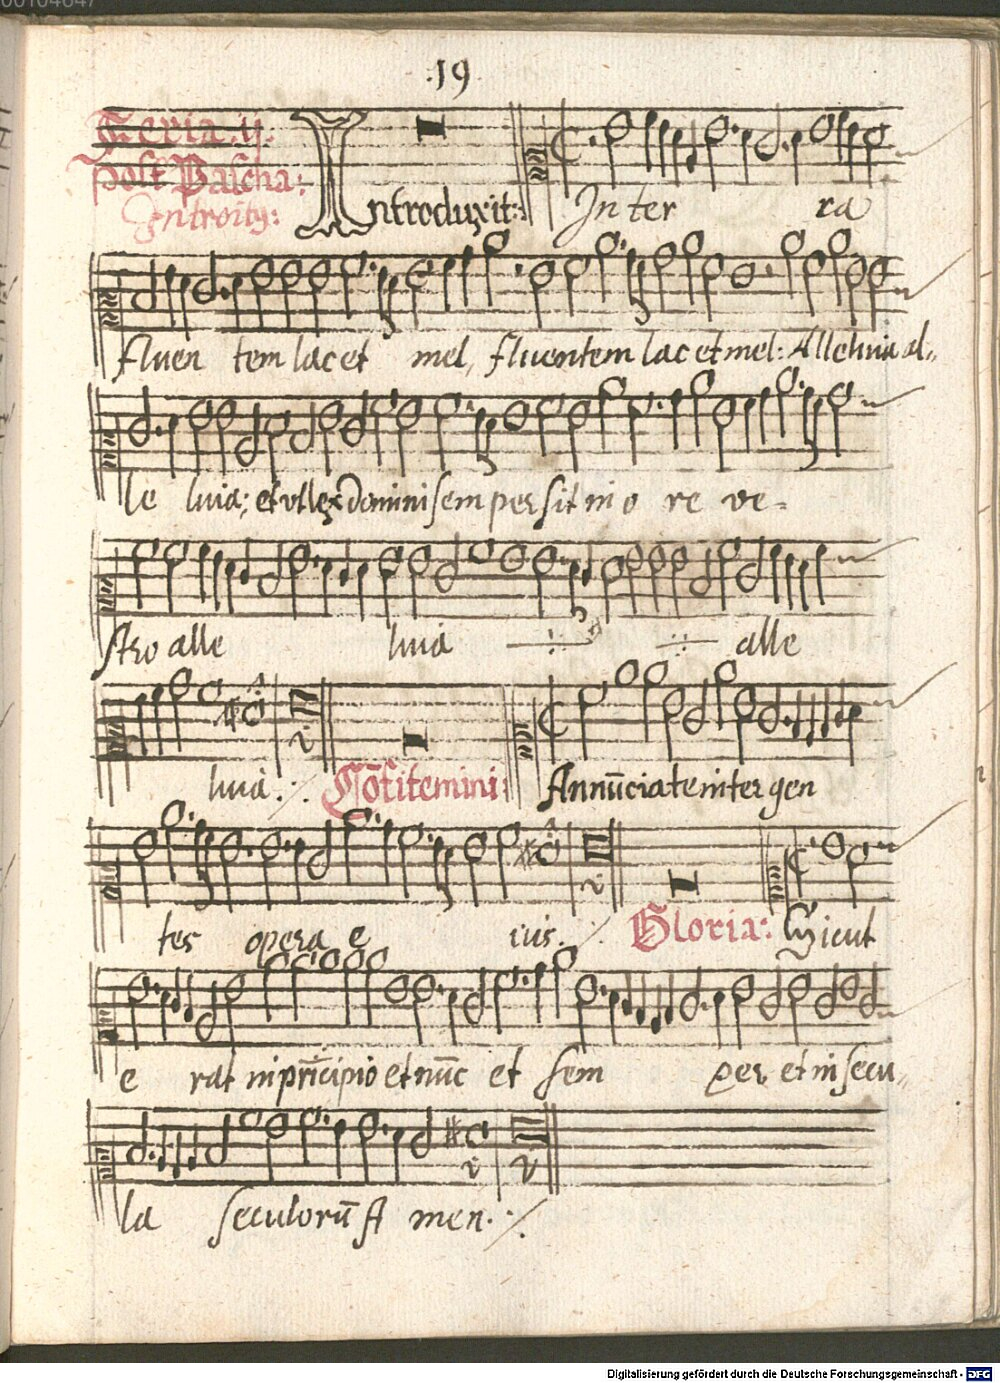 00104647
.19.
Feria .ij.
post Pascha:
Introitq:
Introduxit: In ter ra
fluen tem lac et mel, fluentem lac et mel: Alleluia al„
le luia; et vt lex domini sem per sit in o re ve-
stro alle luia alle
luia. Cōfitemini: Annūciate inter gen
tes opera e ius. Gloria: Sicut
e rat in prīcipio et nūc et sem per et in secu„
la seculorū A men.
Digitalisierung gefördert durch die Deutsche Forschungsgemeinschaft - DFG